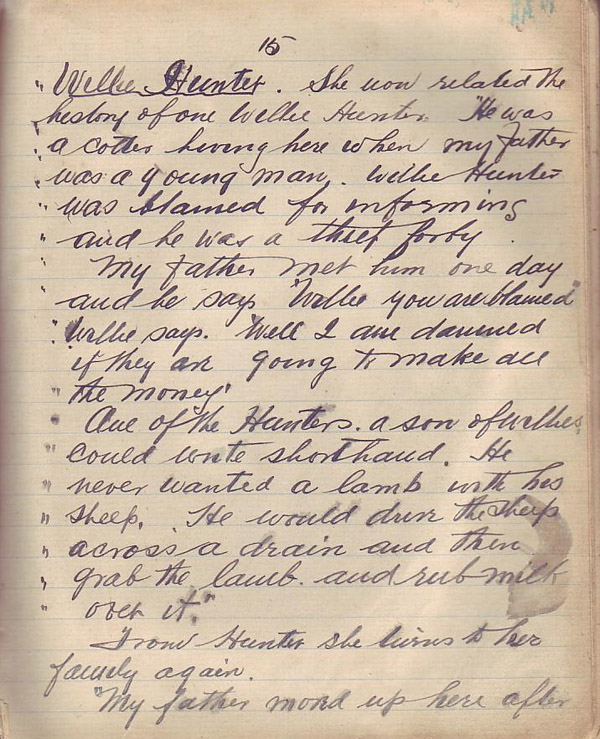 15
" Willie Hunter. She now related the
history of one Willie Hunter. "He was
" a cotter living here when my father
" was a young man. Willie Hunter
" was blamed for informing
" and he was a thief forby.
" My father met him one day
" and he says "Willie you are blamed"
" Willie says. "Well I am damned
" if they are going to make all
" the money"
" One of the Hunters. a son of Willies
" could write shorthand. He
" never wanted a lamb with his
" sheep. He would drive the sheep
" across a drain and then
" grab the lamb. and rub milk
" over it."
From Hunter she turns to her
family again.
"My father moved up here after